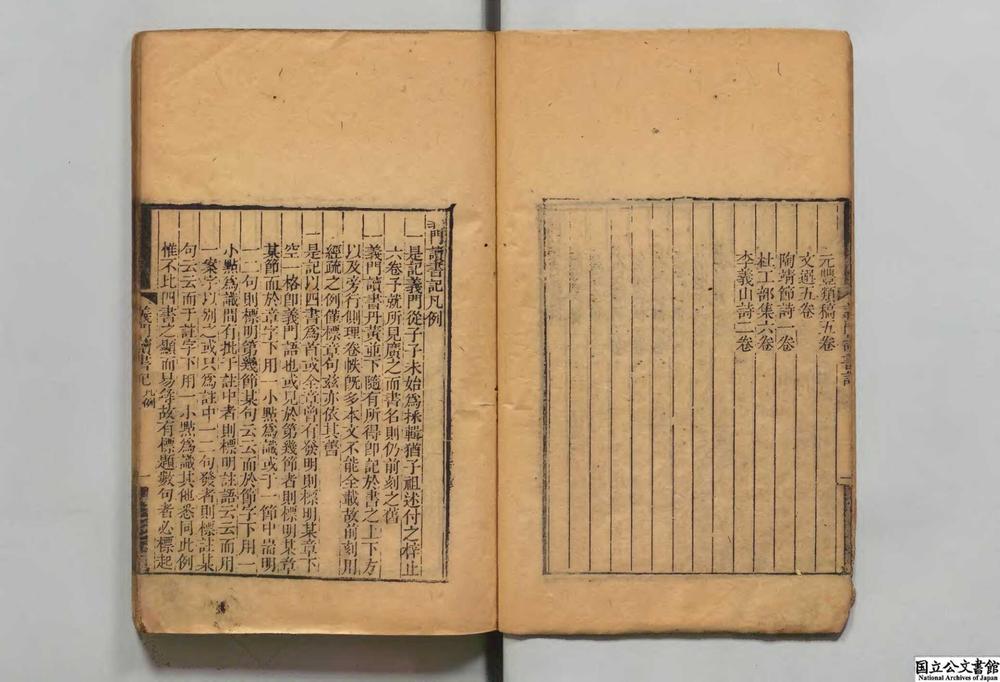 元豐類稿五卷
文選五卷
陶靖節詩一卷
杜工部集六卷
李義山詩二卷
義門讀書記
義門讀書記凡例
一是記義門從子子未始為採輯猶子祖述付之梓止
六卷予就所見廣之而書名則仍前刻之舊
一義門讀書丹黃並下隨有所得卽記於書之上下方
以及旁行側理卷帙旣多本文不能全載故前刻用
經疏之例僅標章句玆亦依其舊
一是記以四書為首或全章曾有發明則標明某章下
空一格卽義門語也或見於第幾節者則標明某章
某節而於章字下用一小點為識或于一節中耑明
一二句則標明第幾節某句云云而於節字下用一
小點為識間有批于註中者則標明註語云云而用
一案字以別之或只為註中一二句發者則標註某
句云云而于註字下用一小點為識其他悉同此例
惟不比四書之顯而易尋故有標題數句者必標起
義門讀書記 凡例 一
国立公文書館
National Archives of Japan